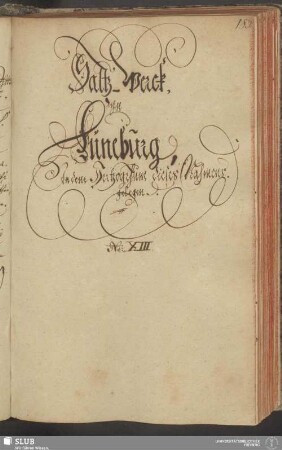 Saltz-Werck,
zu
Lüneburg,
in dem Hertzogthum dieses Nahmens
gelegen.
No. XIII
SLUB
Wir führen Wissen.
UNIVERSITÄTSBIBLIOTHEK
FREIBERG